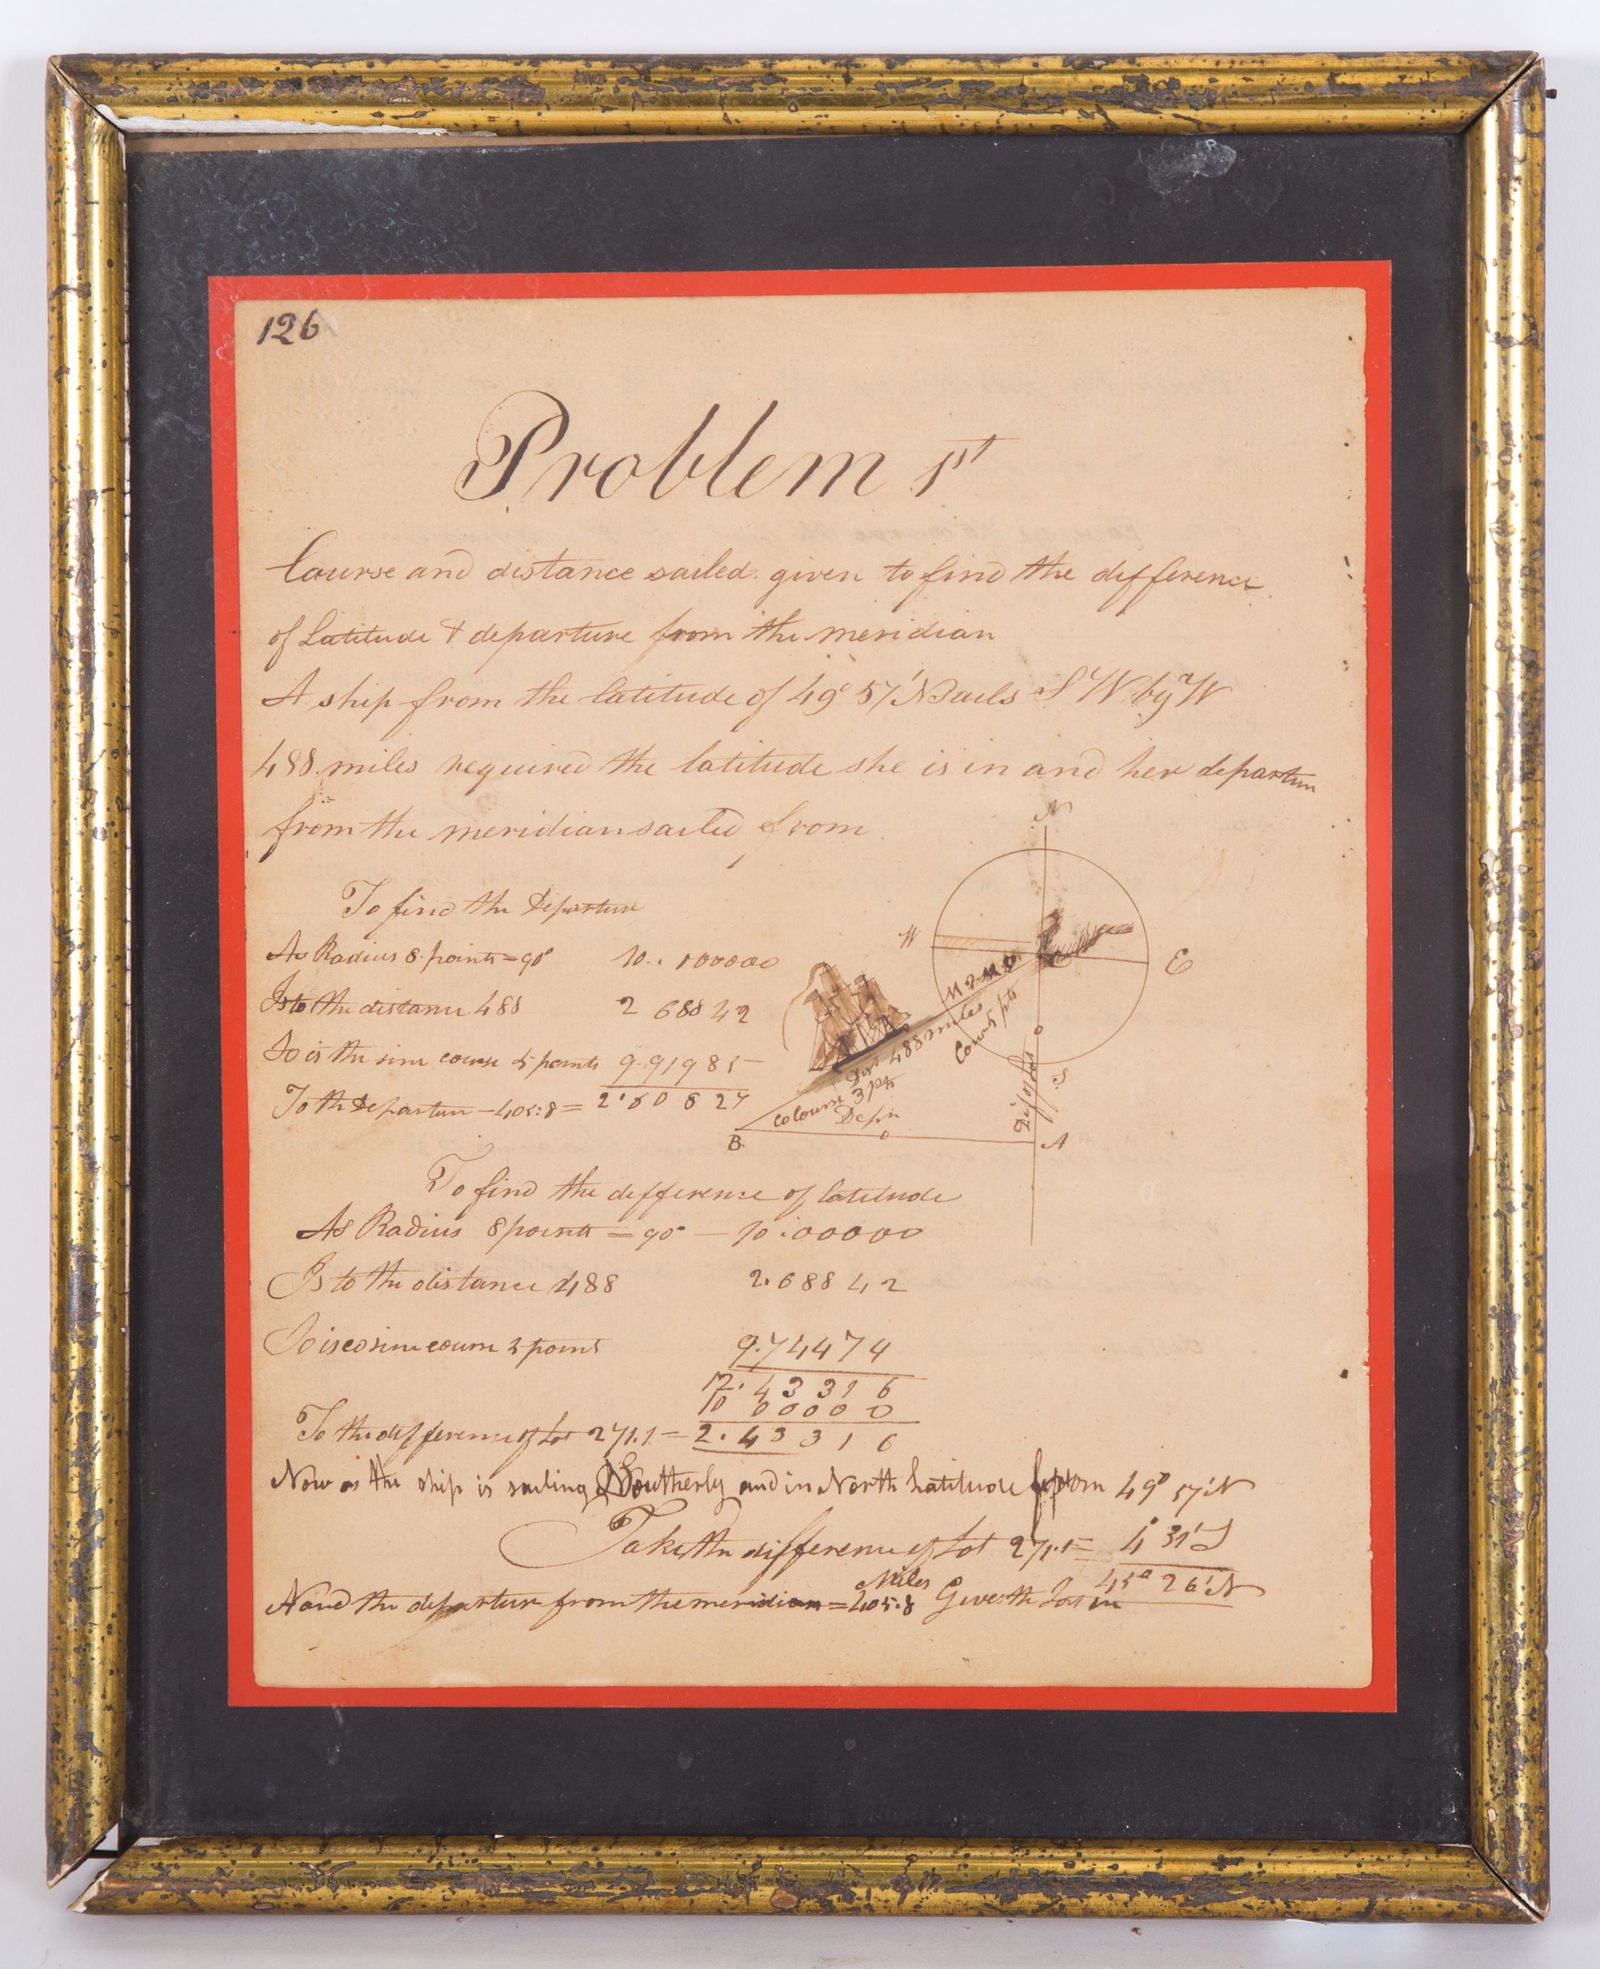 126
Problem 1st
Course and distance sailed given to find the difference
of Latitude & departure from the meridian
A ship from the latitude of 49° 57' N Sails S W by W
488 miles required the latitude she is in and her departure
from the meridian sailed from
N
To find the Departure
As Radius 8 points = 90° 10..100000
W
E
Is to the distance 488 2 68842
So is the sine course 5 points 9.91985
To the Departure - 405:8 = 2.60827
Dist 488 miles
Cours 5 pts
Colourse 3 pts
Depn
Dif of Lat
S
B
A
To find the difference of latitude
As Radius 8 points = 90° — 10.00000
Is to the distance 488 2.68842
So is cosine course 5 points 9.74474
12.43316
10 00000
To the difference of Lat 271.1 = 2.43316
Now as the ship is sailing Southerly and in North Latitude from 49° 57' N
Take the difference of Lat 271.1 = 4° 31' S
45° 26' N
Miles
And the departure from the meridian = 405.8 Gives the Lat in